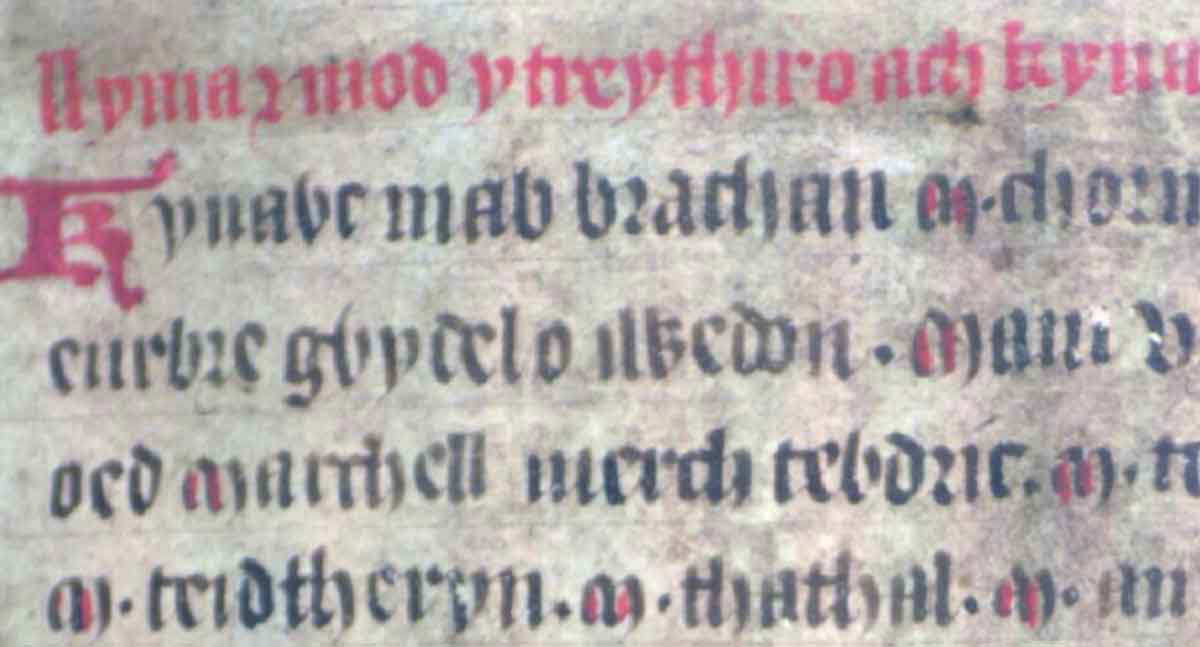 llyma r mod y treythir o ach kyna
Kynavc mab brachan m. chorm
eurbre gvydel o iwerdon . Mam v
oed marchell merch tevdric. m. te
m. teidtheryn. m. thathal. m. an